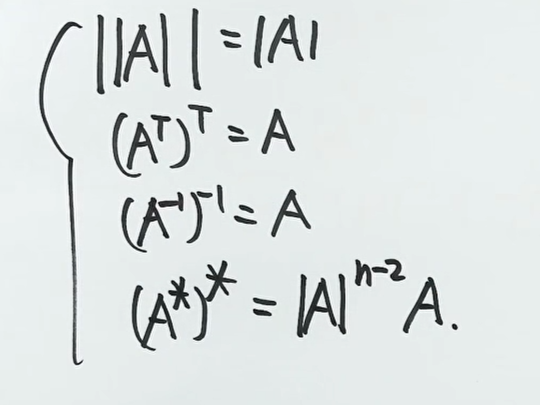 ||A|| = |A|
(A^T)^T = A
(A^-1)^-1 = A
(A^*)^* = |A|^n-2 A.